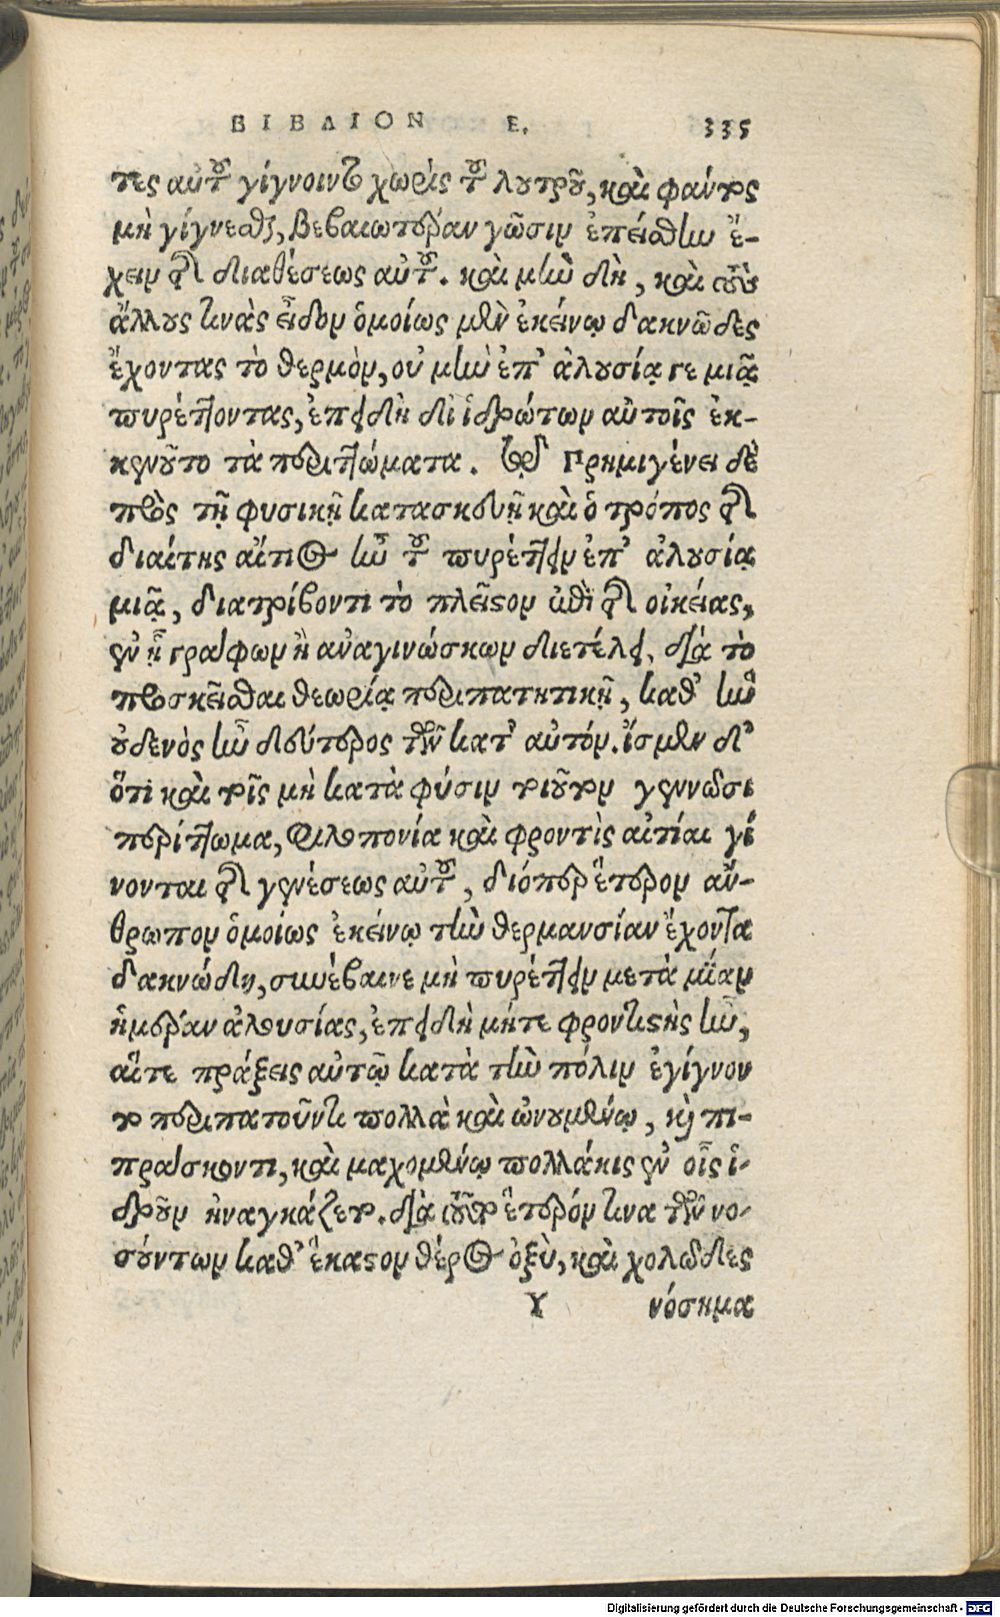 ΒΙΒΛΙΟΝ Ε. 335
τες αὐτοῦ γίγνοιντο χωρὶς τοῦ λουτροῦ, καὶ φανέντος
μὴ γίγνεσθαι, βεβαιωτέραν γνῶσιν ἐπείσθην ἔ-
χειν τῆς διαθέσεως αὐτοῦ. καὶ μὲν δὴ, καὶ τοὺς
ἄλλους τινὰς εἶδον ὁμοίως μὲν ἐκείνῳ δακνῶδες
ἔχοντας τὸ θερμὸν, οὐ μὴν ἐπ' ἀλουσίᾳ γε μιᾷ
πυρέττοντας, ἐπειδὴ δι' ἱδρώτων αὐτοῖς ἐκ-
κενοῦτο τὰ περιττώματα. τῷ δὲ Πρημιγένει δὲ
πρὸς τῇ φυσικῇ κατασκευῇ καὶ ὁ τρόπος τῆς
διαίτης αἴτιος ἦν τοῦ πυρέττειν ἐπ' ἀλουσίᾳ
μιᾷ, διατρίβοντι τὸ πλεῖστον ἐπὶ τῆς οἰκείας,
ἐν ᾗ γράφων ἢ ἀναγινώσκων διετέλει, διὰ τὸ
προσκεῖσθαι θεωρίᾳ περιπατητικῇ, καθ' ἣν
οὐδενὸς ἦν δεύτερος τῶν κατ' αὐτόν. ἴσμεν δ'
ὅτι καὶ τοῖς μὴ κατὰ φύσιν τοιοῦτον γεννῶσι
περίττωμα, φιλοπονία καὶ φροντὶς αἰτίαι γί
νονται τῆς γενέσεως αὐτοῦ, διόπερ ἕτερον ἄν-
θρωπον ὁμοίως ἐκείνῳ τὴν θερμανσίαν ἔχοντα
δακνώδη, συνέβαινε μὴ πυρέττειν μετὰ μίαν
ἡμέραν ἀλουσίας, ἐπειδὴ μήτε φροντιστὴς ἦν,
αἵτε πράξεις αὐτῷ κατὰ τὴν πόλιν ἐγίγνον
το περιπατοῦντι πολλὰ καὶ ὠνουμένῳ, καὶ πι-
πράσκοντι, καὶ μαχομένῳ πολλάκις ἐν οἷς ἱ-
δροῦν ἠναγκάζετο. διὰ τοῦτο ἕτερόν τινα τῶν νο-
σούντων καθ' ἕκαστον θέρος ὀξὺ, καὶ χολῶδες
Υ νόσημα
Digitalisierung gefördert durch die Deutsche Forschungsgemeinschaft - DFG